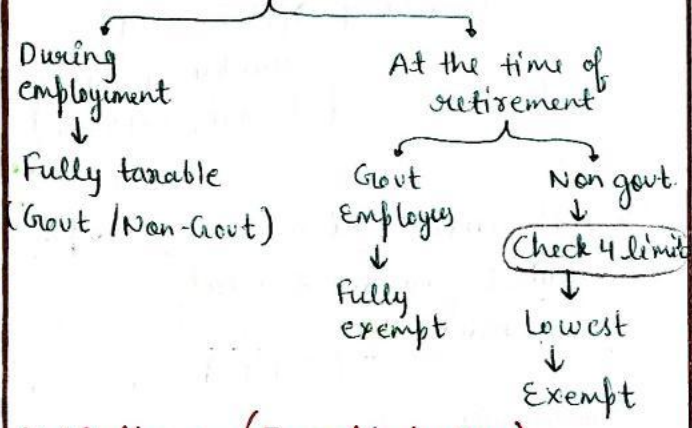 During
employment
Fully taxable
(Govt / Non-Govt)
At the time of
retirement
Govt
Employees
Fully
exempt
Non govt.
Check 4 limit
Lowest
Exempt